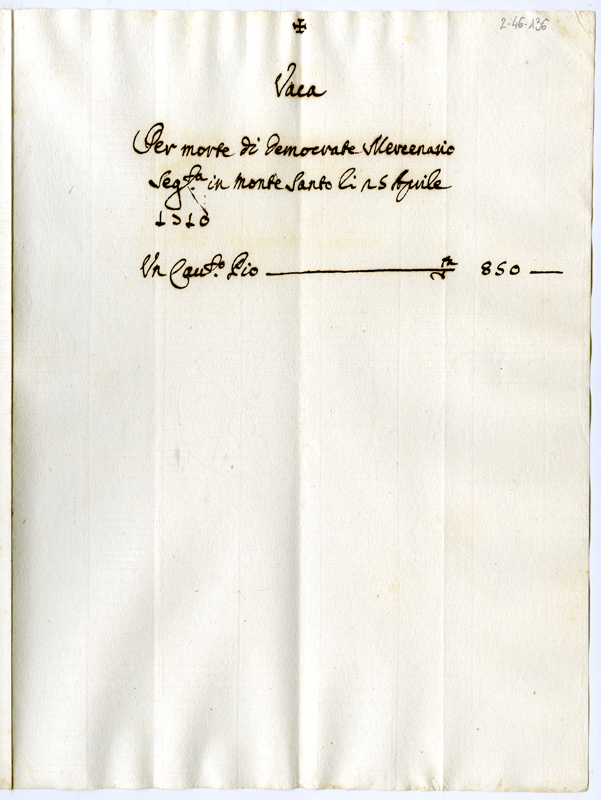 2-46-136
✠
Vaca
Per morte di Democrate Mercenario
Seg.ta in monte Santo li 25 Aprile
Un Cau.to Pio 850